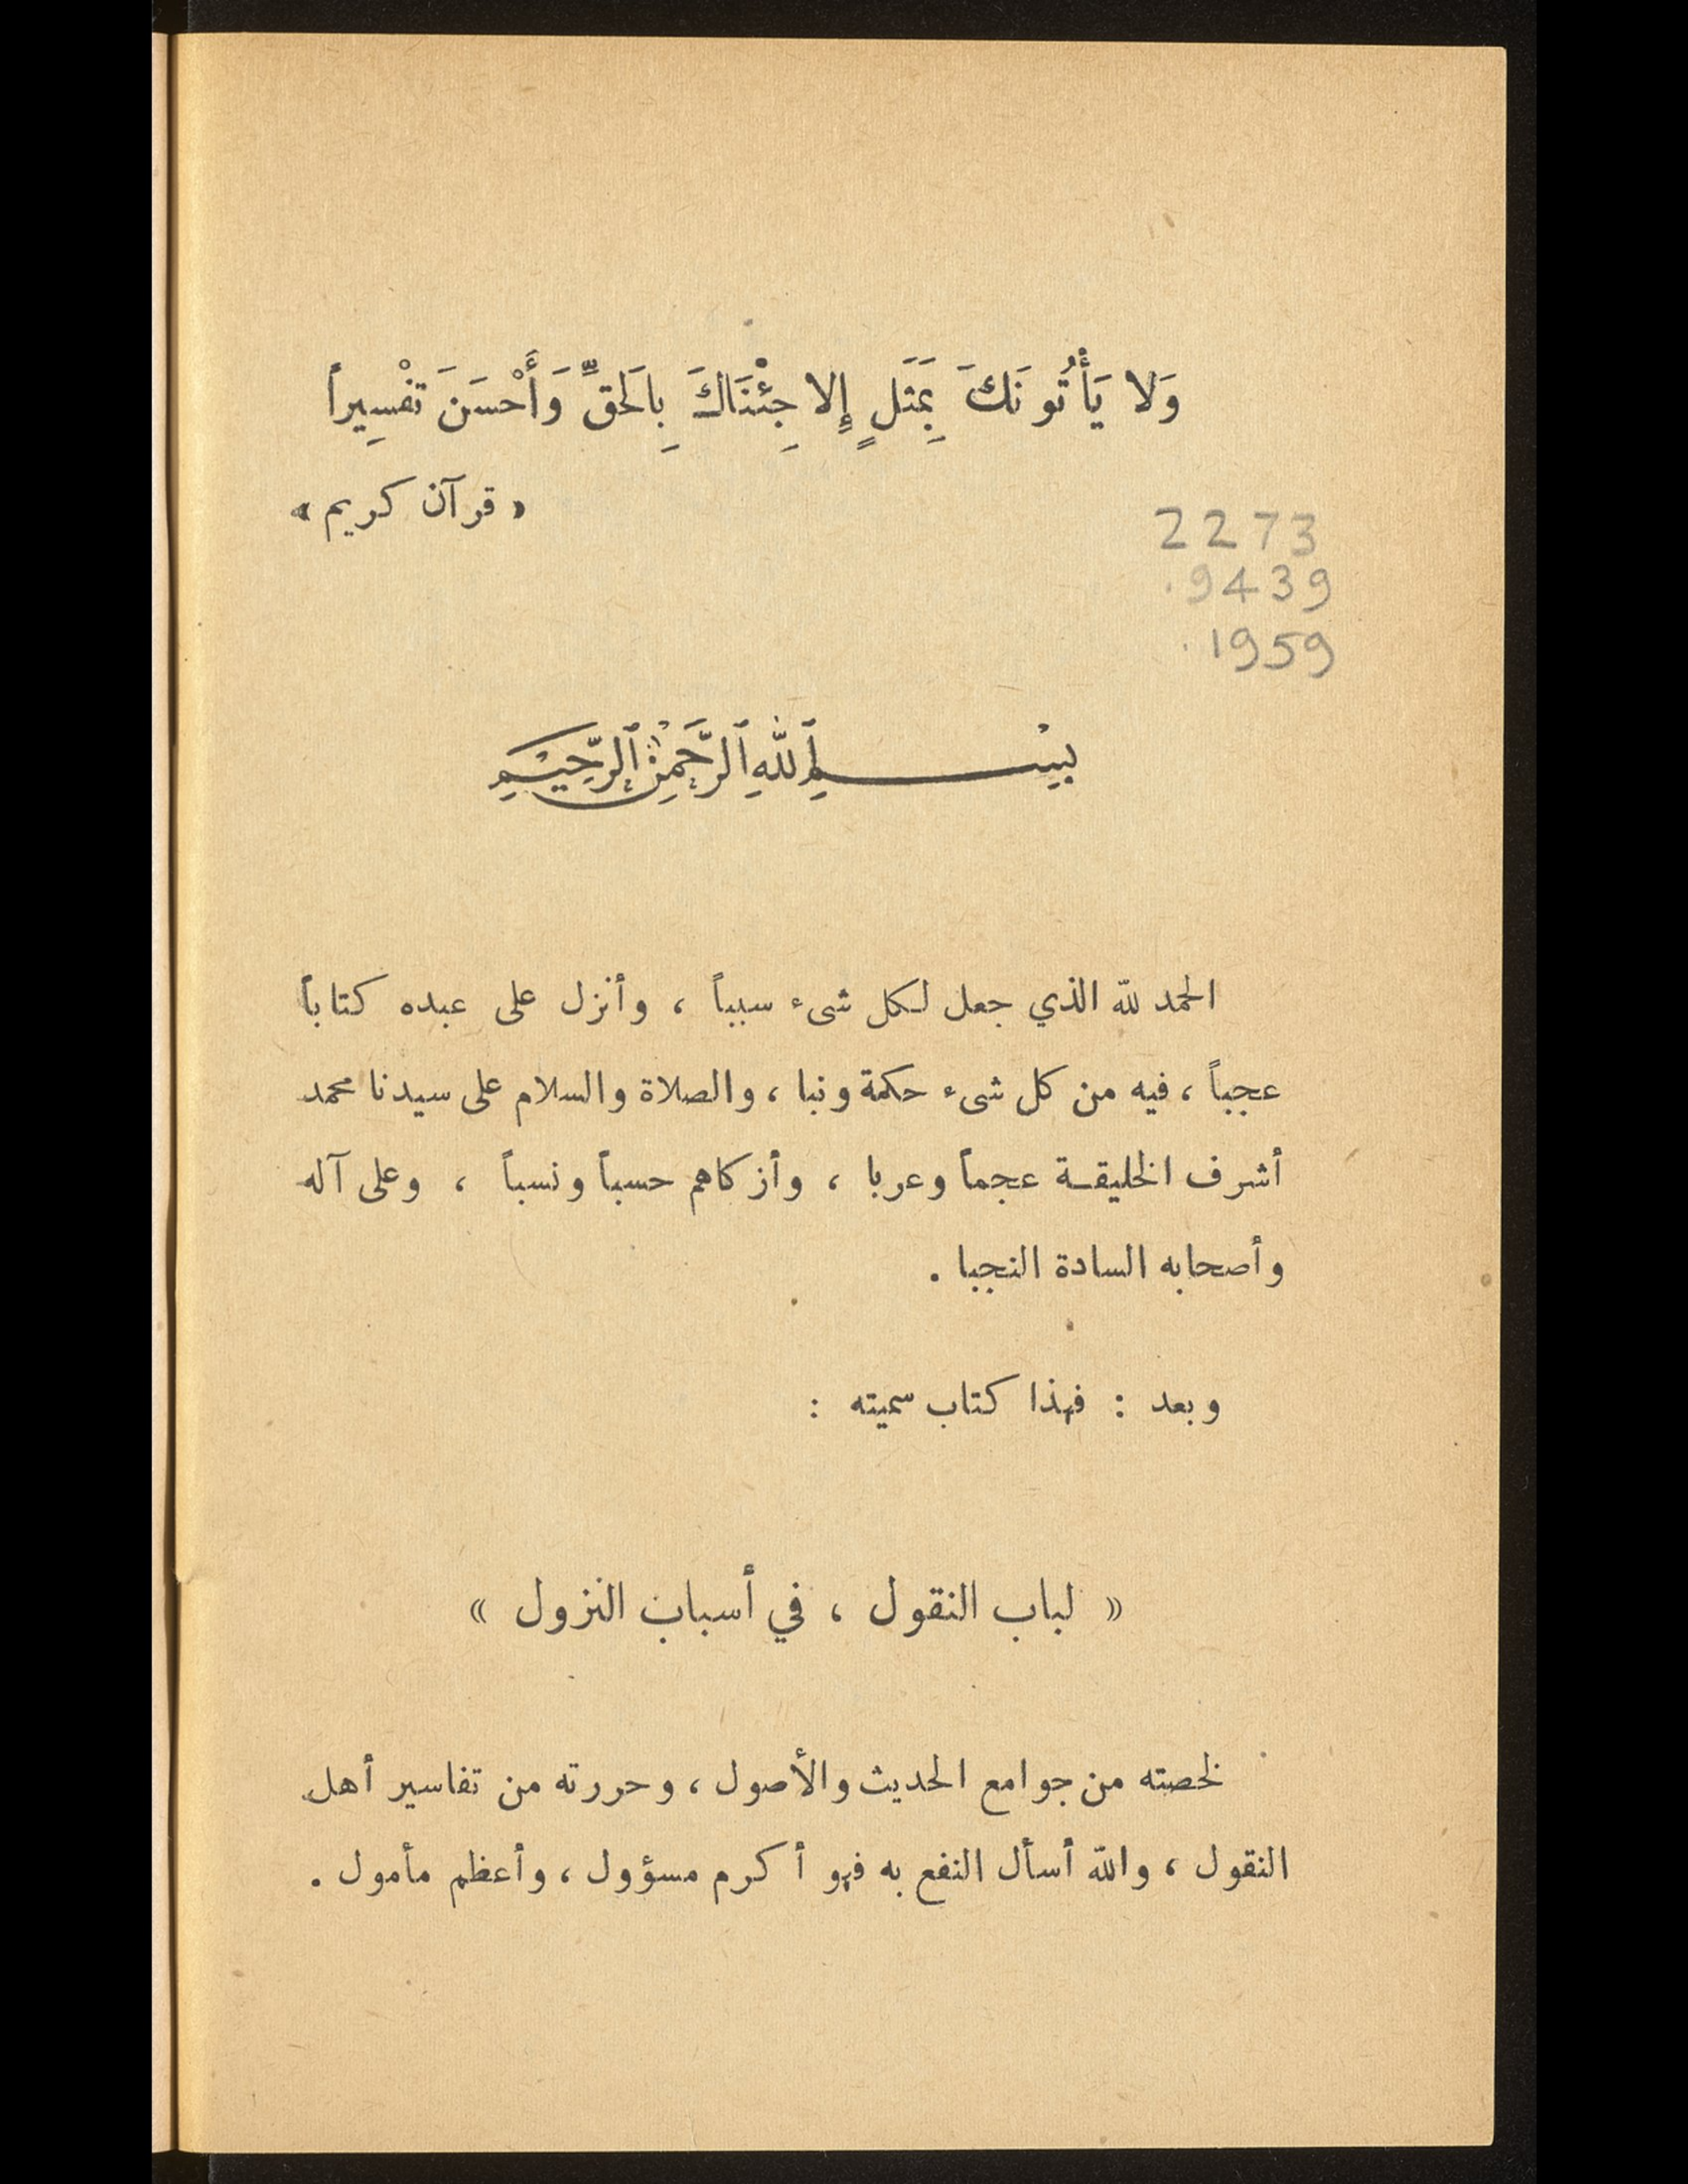 وَلا يَأْتُونَكَ بِمَثَلٍ إِلا جِئْنَاكَ بِالَحَقِّ وَأَحْسَنَ تَفْسِيراً
« قرآن كريم »
2273
.9439
.1959
بِسْمِ ٱللهِ ٱلرَّحْمٰنِ ٱلرَّحِيْمِ
الحمد لله الذي جعل لكل شىء سبباً ، وأنزل على عبده كتاباً
عجباً ، فيه من كل شىء حكمة ونبا ، والصلاة والسلام على سيدنا محمد
أشرف الخليقة عجماً وعربا ، وأزكاهم حسباً ونسباً ، وعلى آله
وأصحابه السادة النجبا .
وبعد : فهذا كتاب سميته :
« لباب النقول ، في أسباب النزول »
لخصته من جوامع الحديث والأصول ، وحررته من تفاسير أهل
النقول ، والله أسأل النفع به فهو أكرم مسؤول ، وأعظم مأمول .